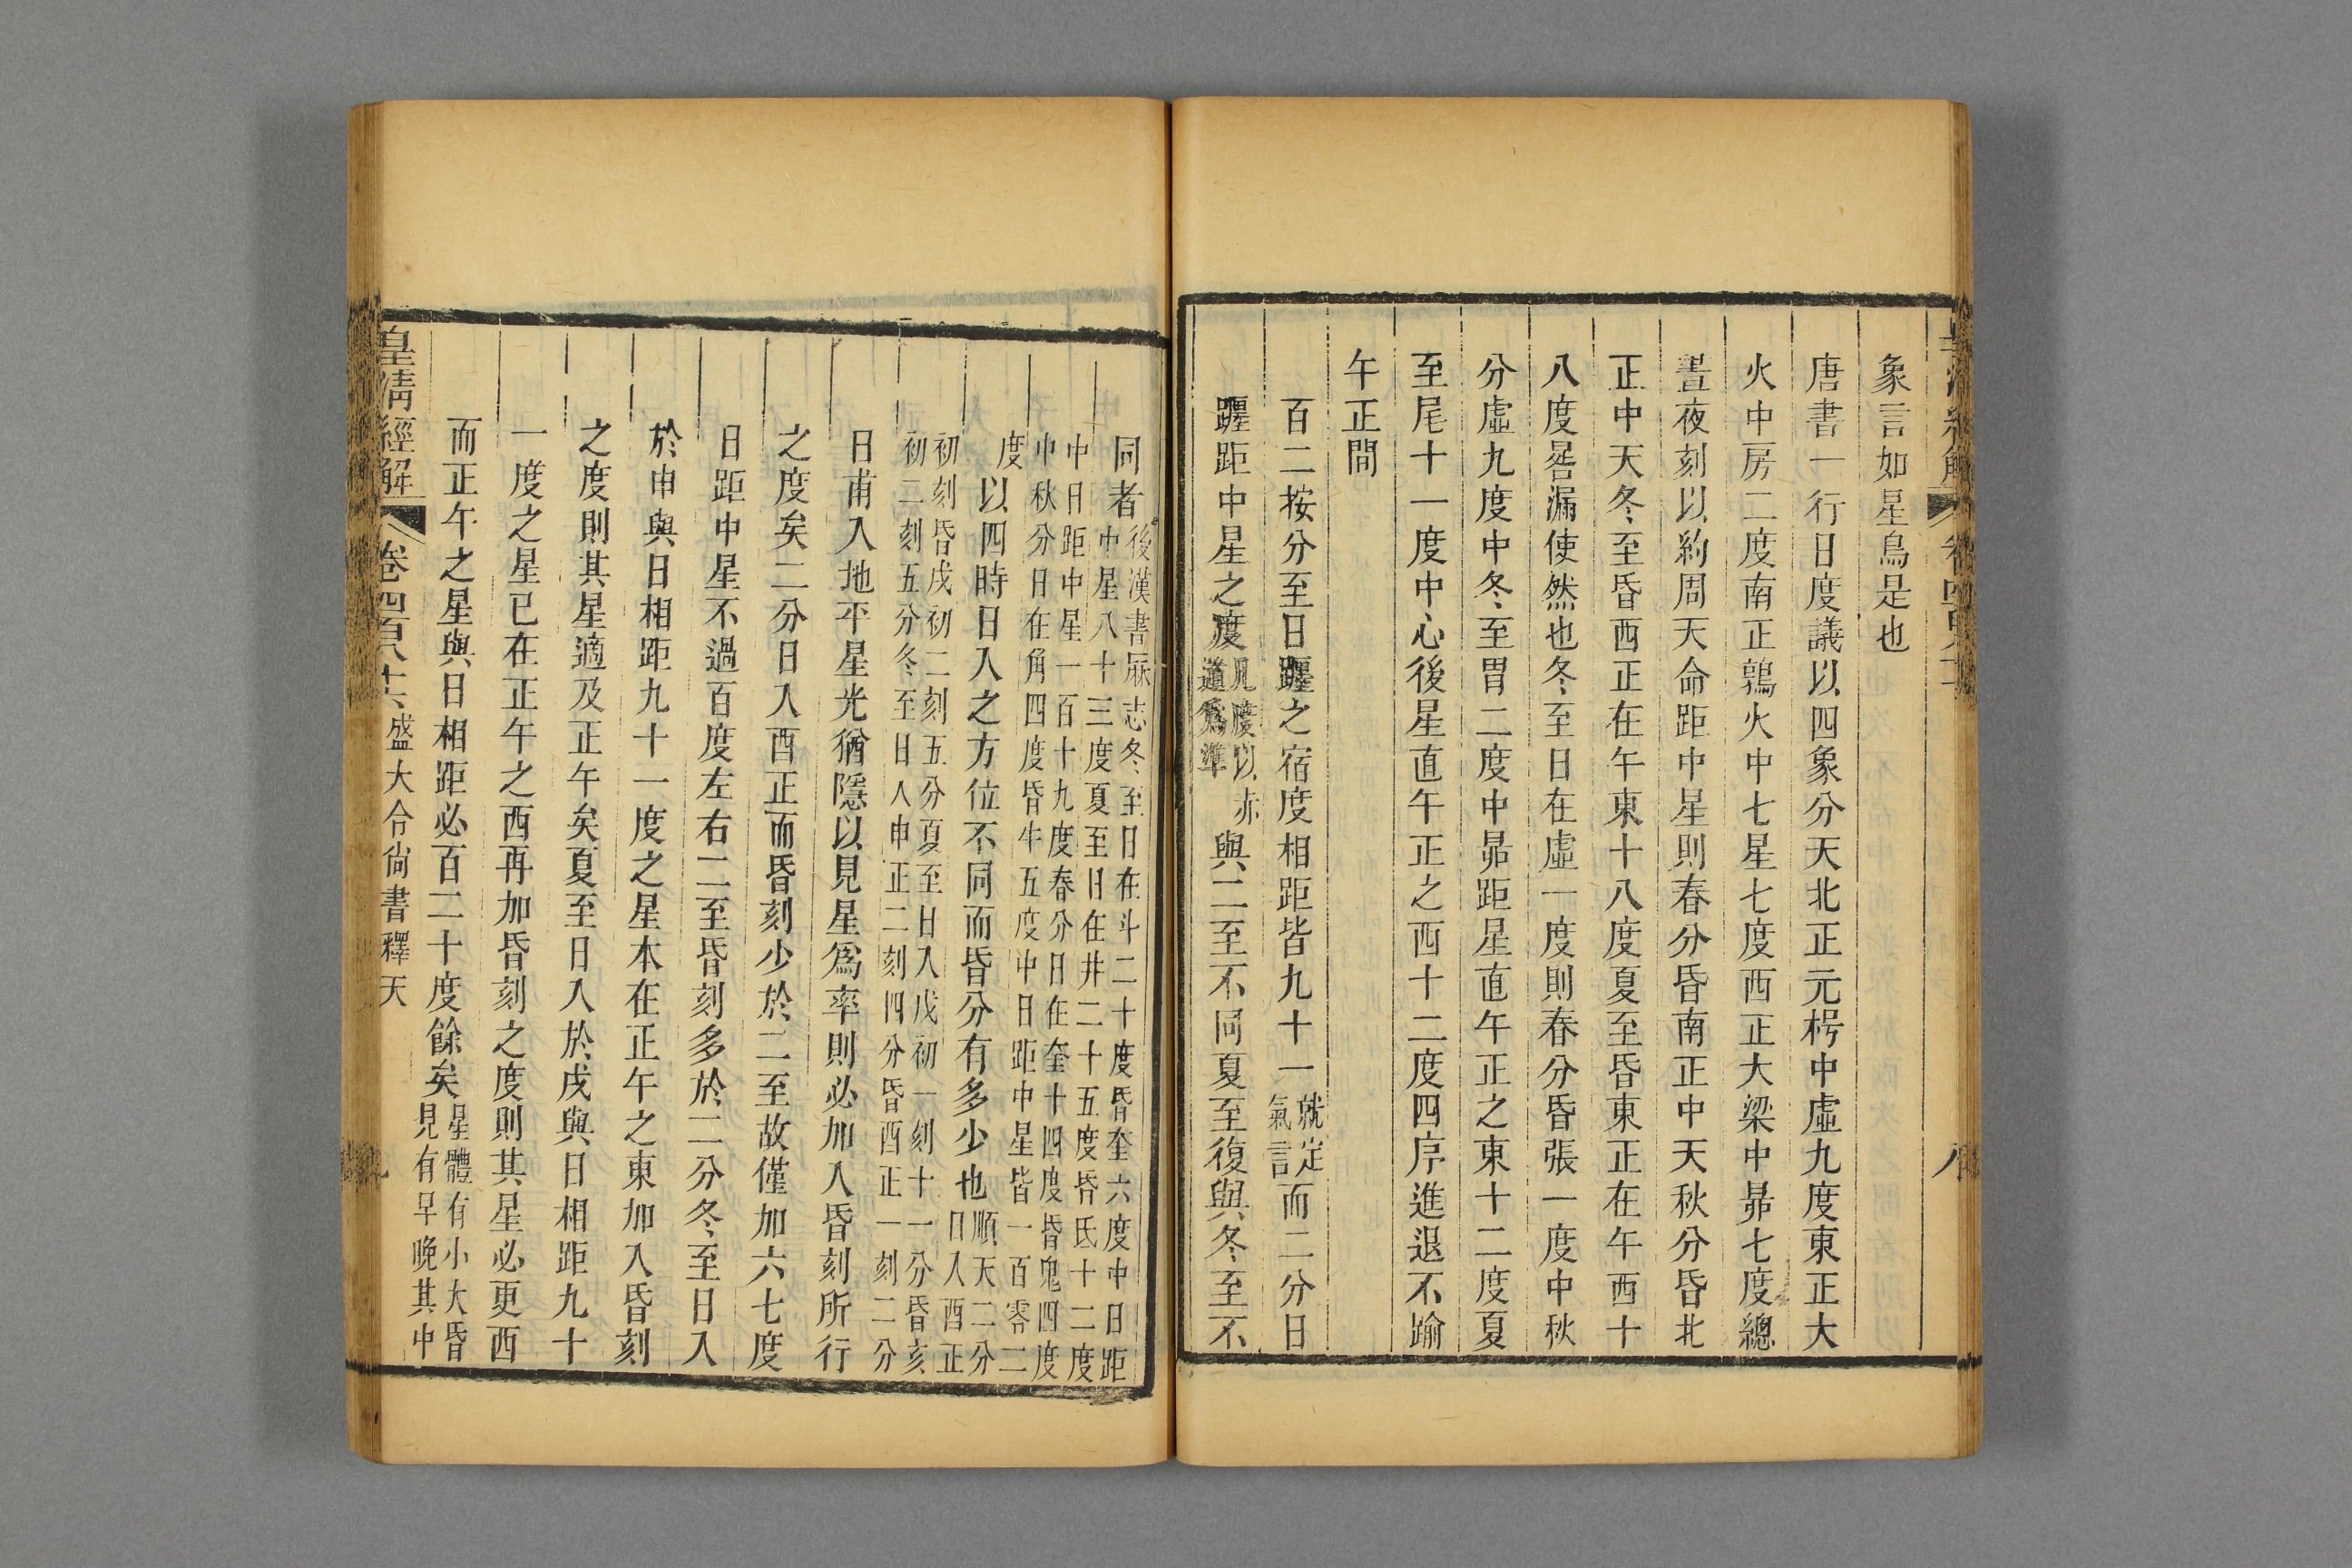 象言如星鳥是也
唐書一行日度議以四象分天北正元枵中虛九度東正大
火中房二度南正鶉火中七星七度西正大梁中昴七度總
晝夜刻以約周天命距中星則春分昏南正中天秋分昏北
正中天冬至昏西正在午東十八度夏至昏東正在午西十
八度晷漏使然也冬至日在虛一度則春分昏張一度中秋
分虛九度中冬至胃二度中昴距星直午正之東十二度夏
至尾十一度中心後星直午正之西十二度四序進退不踰
午正間
百二按分至日躔之宿度相距皆九十一就定氣言而二分日
躔距中星之度凡度以赤道爲準與二至不同夏至復與冬至不
同者後漢書厤志冬至日在斗二十度昏奎六度中日距
中星八十三度夏至日在井二十五度昏氐十二度
中日距中星一百十九度春分日在奎十四度昏鬼四度
中秋分日在角四度昏牛五度中日距中星皆一百零二
度以四時日入之方位不同而昏分有多少也順天二分日入酉正
初刻昏戌初二刻五分夏至日入戌初一刻十一分昏亥
初二刻五分冬至日入申正二刻四分昏酉正一刻二分
日甫入地平星光猶隱以見星爲率則必加入昏刻所行
之度矣二分日入酉正而昏刻少於二至故僅加六七度
日距中星不過百度左右二至昏刻多於二分冬至日入
於申與日相距九十一度之星本在正午之東加入昏刻
之度則其星適及正午矣夏至日入於戌與日相距九十
一度之星已在正午之西再加昏刻之度則其星必更西
而正午之星與日相距必百二十度餘矣星體有小大昏見有早晚其中
皇清經解 卷四百八十六 盛大令尚書釋天 九